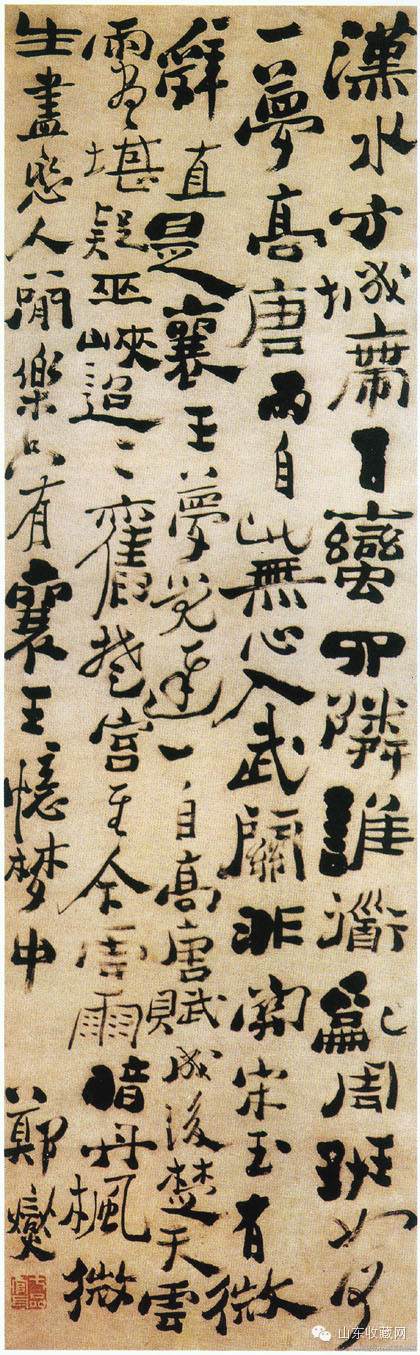 漢水方城帶百蠻四隣誰道亂周班如何
一夢高唐雨自此無心入武關非關宋玉有微
辭直是襄王夢覺遲一自高唐賦成後楚天雲
雨盡堪疑巫峽迢〻舊楚宮至今雲雨暗丹楓微
生盡戀人間樂只有襄王憶夢中
鄭燮
山东收藏网